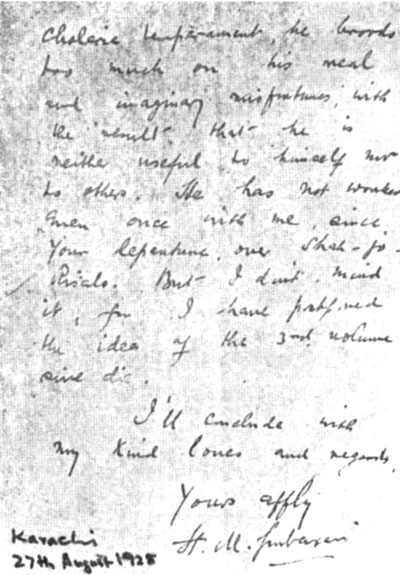 Choleric temperament, he broods
too much on his real
and imaginary misfortunes, with
the result that he is
neither useful to himself nor
to others. He has not worked
even once with me, since
your departure, over Shah-jo-
Risalo. But I don't mind
it, for I have postponed
the idea of the 3rd volume
sine die.
I'll conclude with
my kind loves and regards,
Yours affly
H. M. Gurbaxani
Karachi
27th August 1928